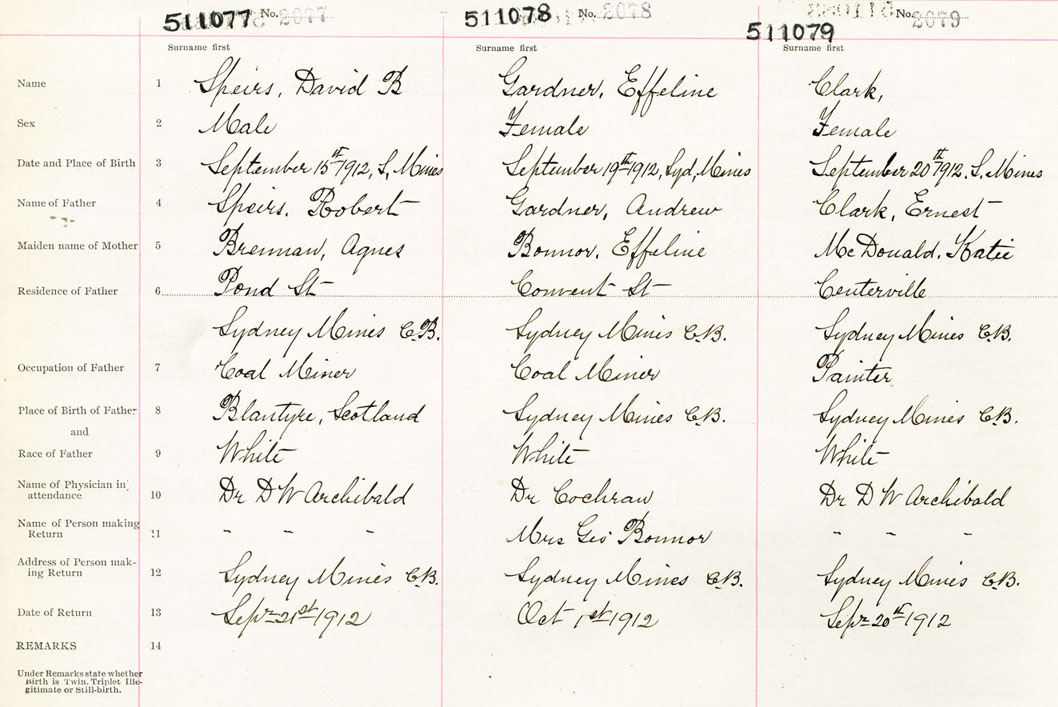 511077 No. 2077 511078 No. 2078 511079 No. 2079
Surname first Surname first Surname first
Name 1 Speirs, David B Gardner, Effeline Clark,
Sex 2 Male Female Female
Date and Place of Birth 3 September 15th 1912, S, Mines September 19th 1912, Syd, Mines September 20th 1912. S. Mines
Name of Father 4 Speirs. Robert Gardner, Andrew Clark, Ernest
Maiden name of Mother 5 Brennan, Agnes Bonnor. Effeline McDonald. Katie
Residence of Father 6 Pond St Convent St Centerville
Sydney Mines C.B. Sydney Mines C.B. Sydney Mines C.B.
Occupation of Father 7 Coal Miner Coal Miner Painter
Place of Birth of Father 8 Blantyre, Scotland Sydney Mines C.B. Sydney Mines C.B.
and
Race of Father 9 White White White
Name of Physician in attendance 10 Dr D W Archibald Dr Cochran Dr D W Archibald
Name of Person making Return 11 - - - Mrs Geo Bonnor - - -
Address of Person making Return 12 Sydney Mines C.B. Sydney Mines C.B. Sydney Mines C.B.
Date of Return 13 Sepr 21st 1912 Oct 1st 1912 Sepr 20th 1912
REMARKS 14
Under Remarks state whether
Birth is Twin. Triplet Ille-
gitimate or Still-birth.